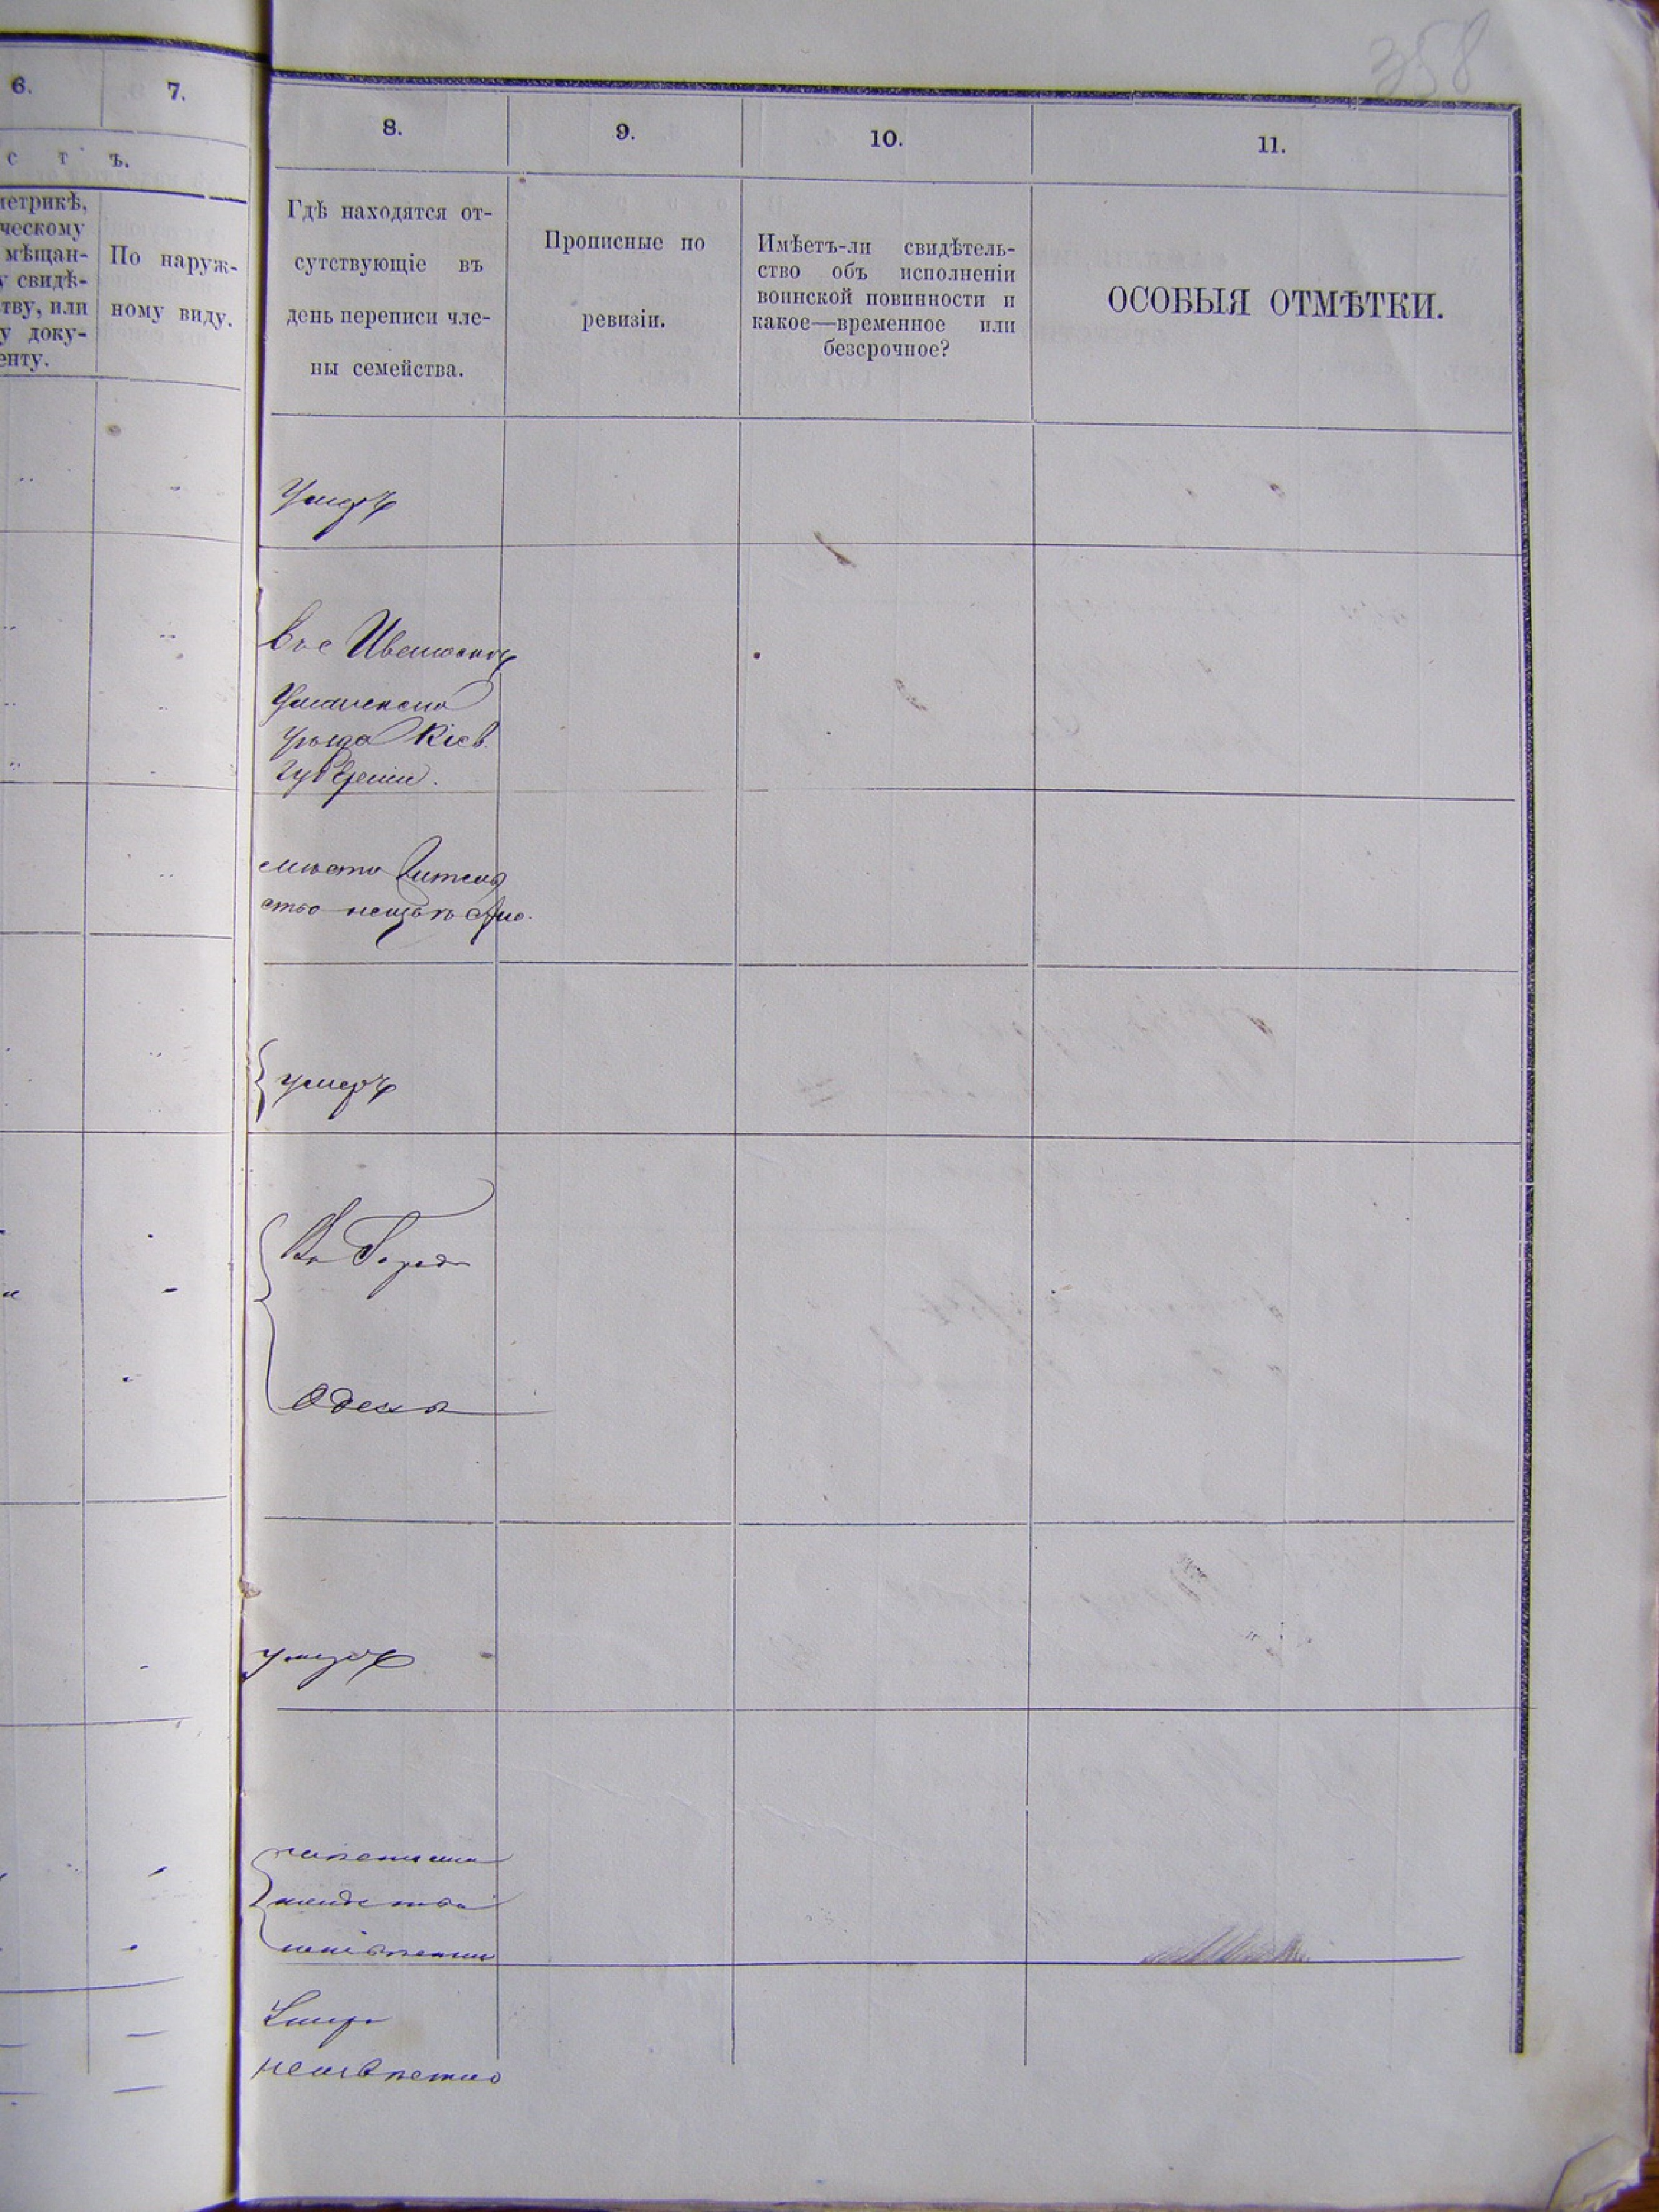 358
6.
7.
8.
9.
10.
11.
с т ъ.
метрикѣ,
ческому
мѣщан-
у свидѣ-
тву, или
у доку-
енту.
По наруж-
ному виду.
Гдѣ находятся от-
сутствующіе въ
день переписи чле-
ны семейства.
Прописные по
ревизіи.
Имѣетъ-ли свидѣтель-
ство объ исполненіи
воинской повинности и
какое—временное или
безсрочное?
ОСОБЫЯ ОТМѢТКИ.
Умеръ
Въ с
Уманского
уѣзда Кіев.
губерніи.
место житель
ство неизвѣстно.
умеръ
Въ Городѣ
Одессѣ
умеръ
жительства
Умеръ
неизвѣстно